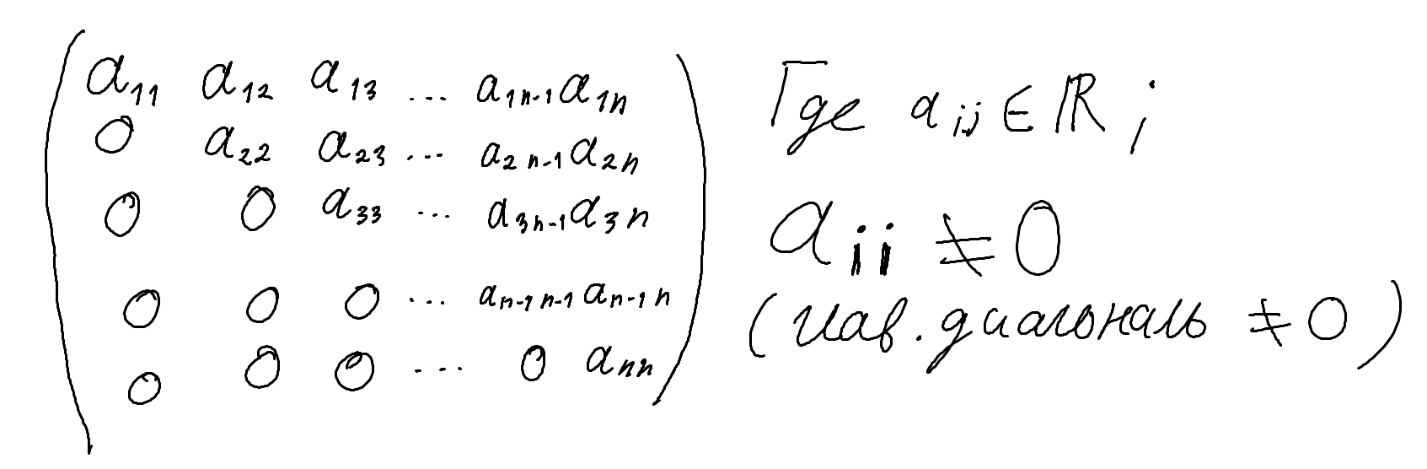 a₁₁ a₁₂ a₁₃ ... a₁ₙ₋₁ a₁ₙ
0 a₂₂ a₂₃ ... a₂ₙ₋₁ a₂ₙ
0 0 a₃₃ ... a₃ₙ₋₁ a₃ₙ
0 0 0 ... aₙ₋₁ₙ₋₁ aₙ₋₁ₙ
0 0 0 ... 0 aₙₙ
Где aᵢⱼ ∈ ℝ ;
aᵢᵢ ≠ 0
(глав. диагональ ≠ 0)